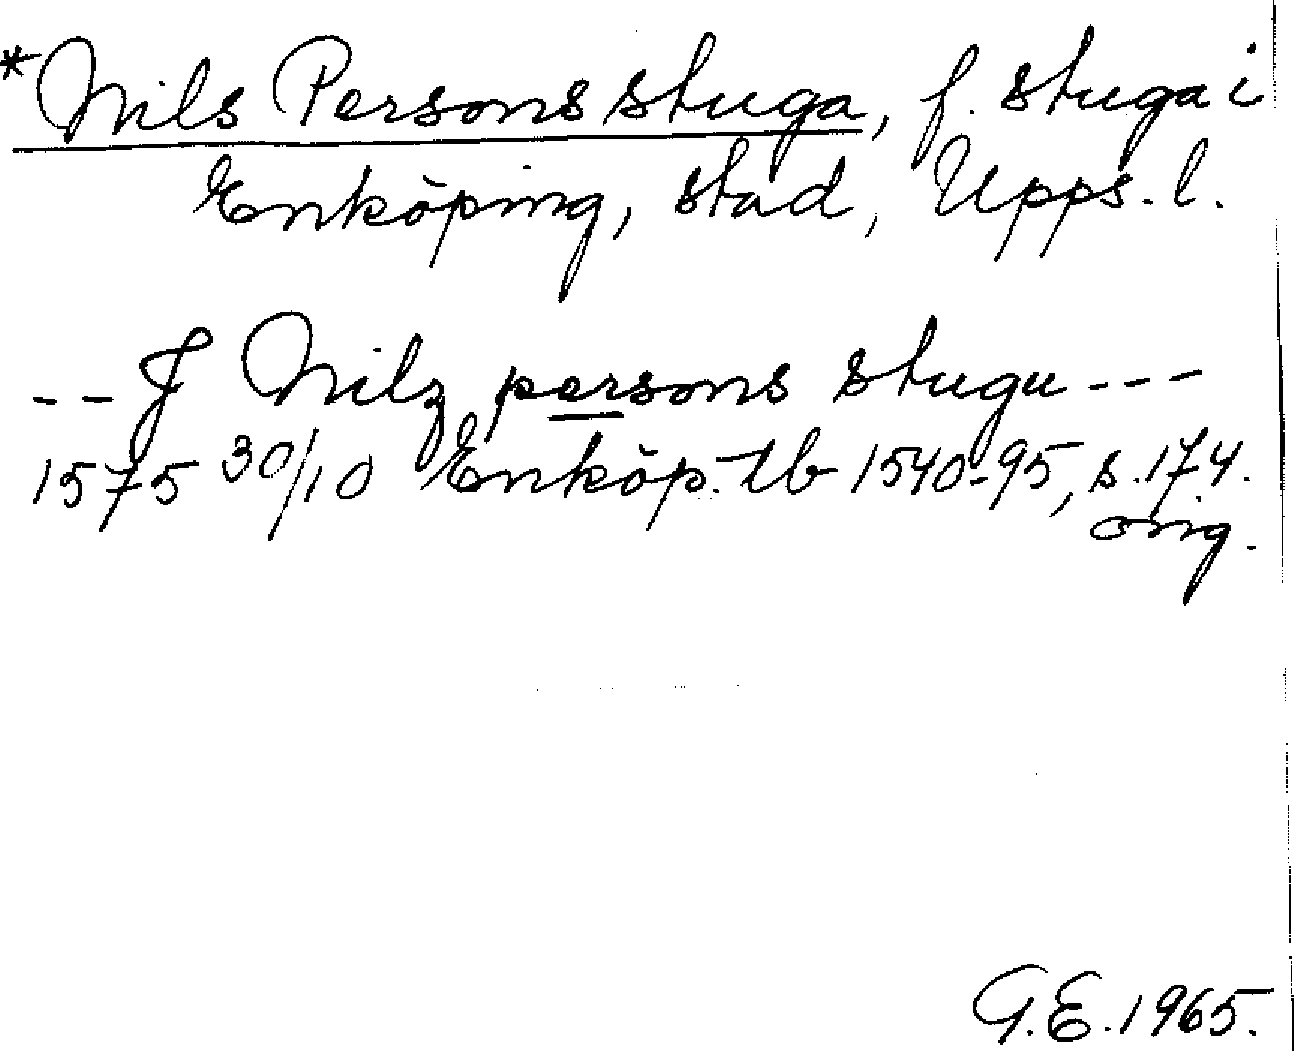 *Nils Persons stuga, f. stuga i
Enköping, stad, Upps. l.
--J Nilz persons stugu---
1575 30/10 Enköp. tb 1540-95, s. 174.
orig.
G.E. 1965.